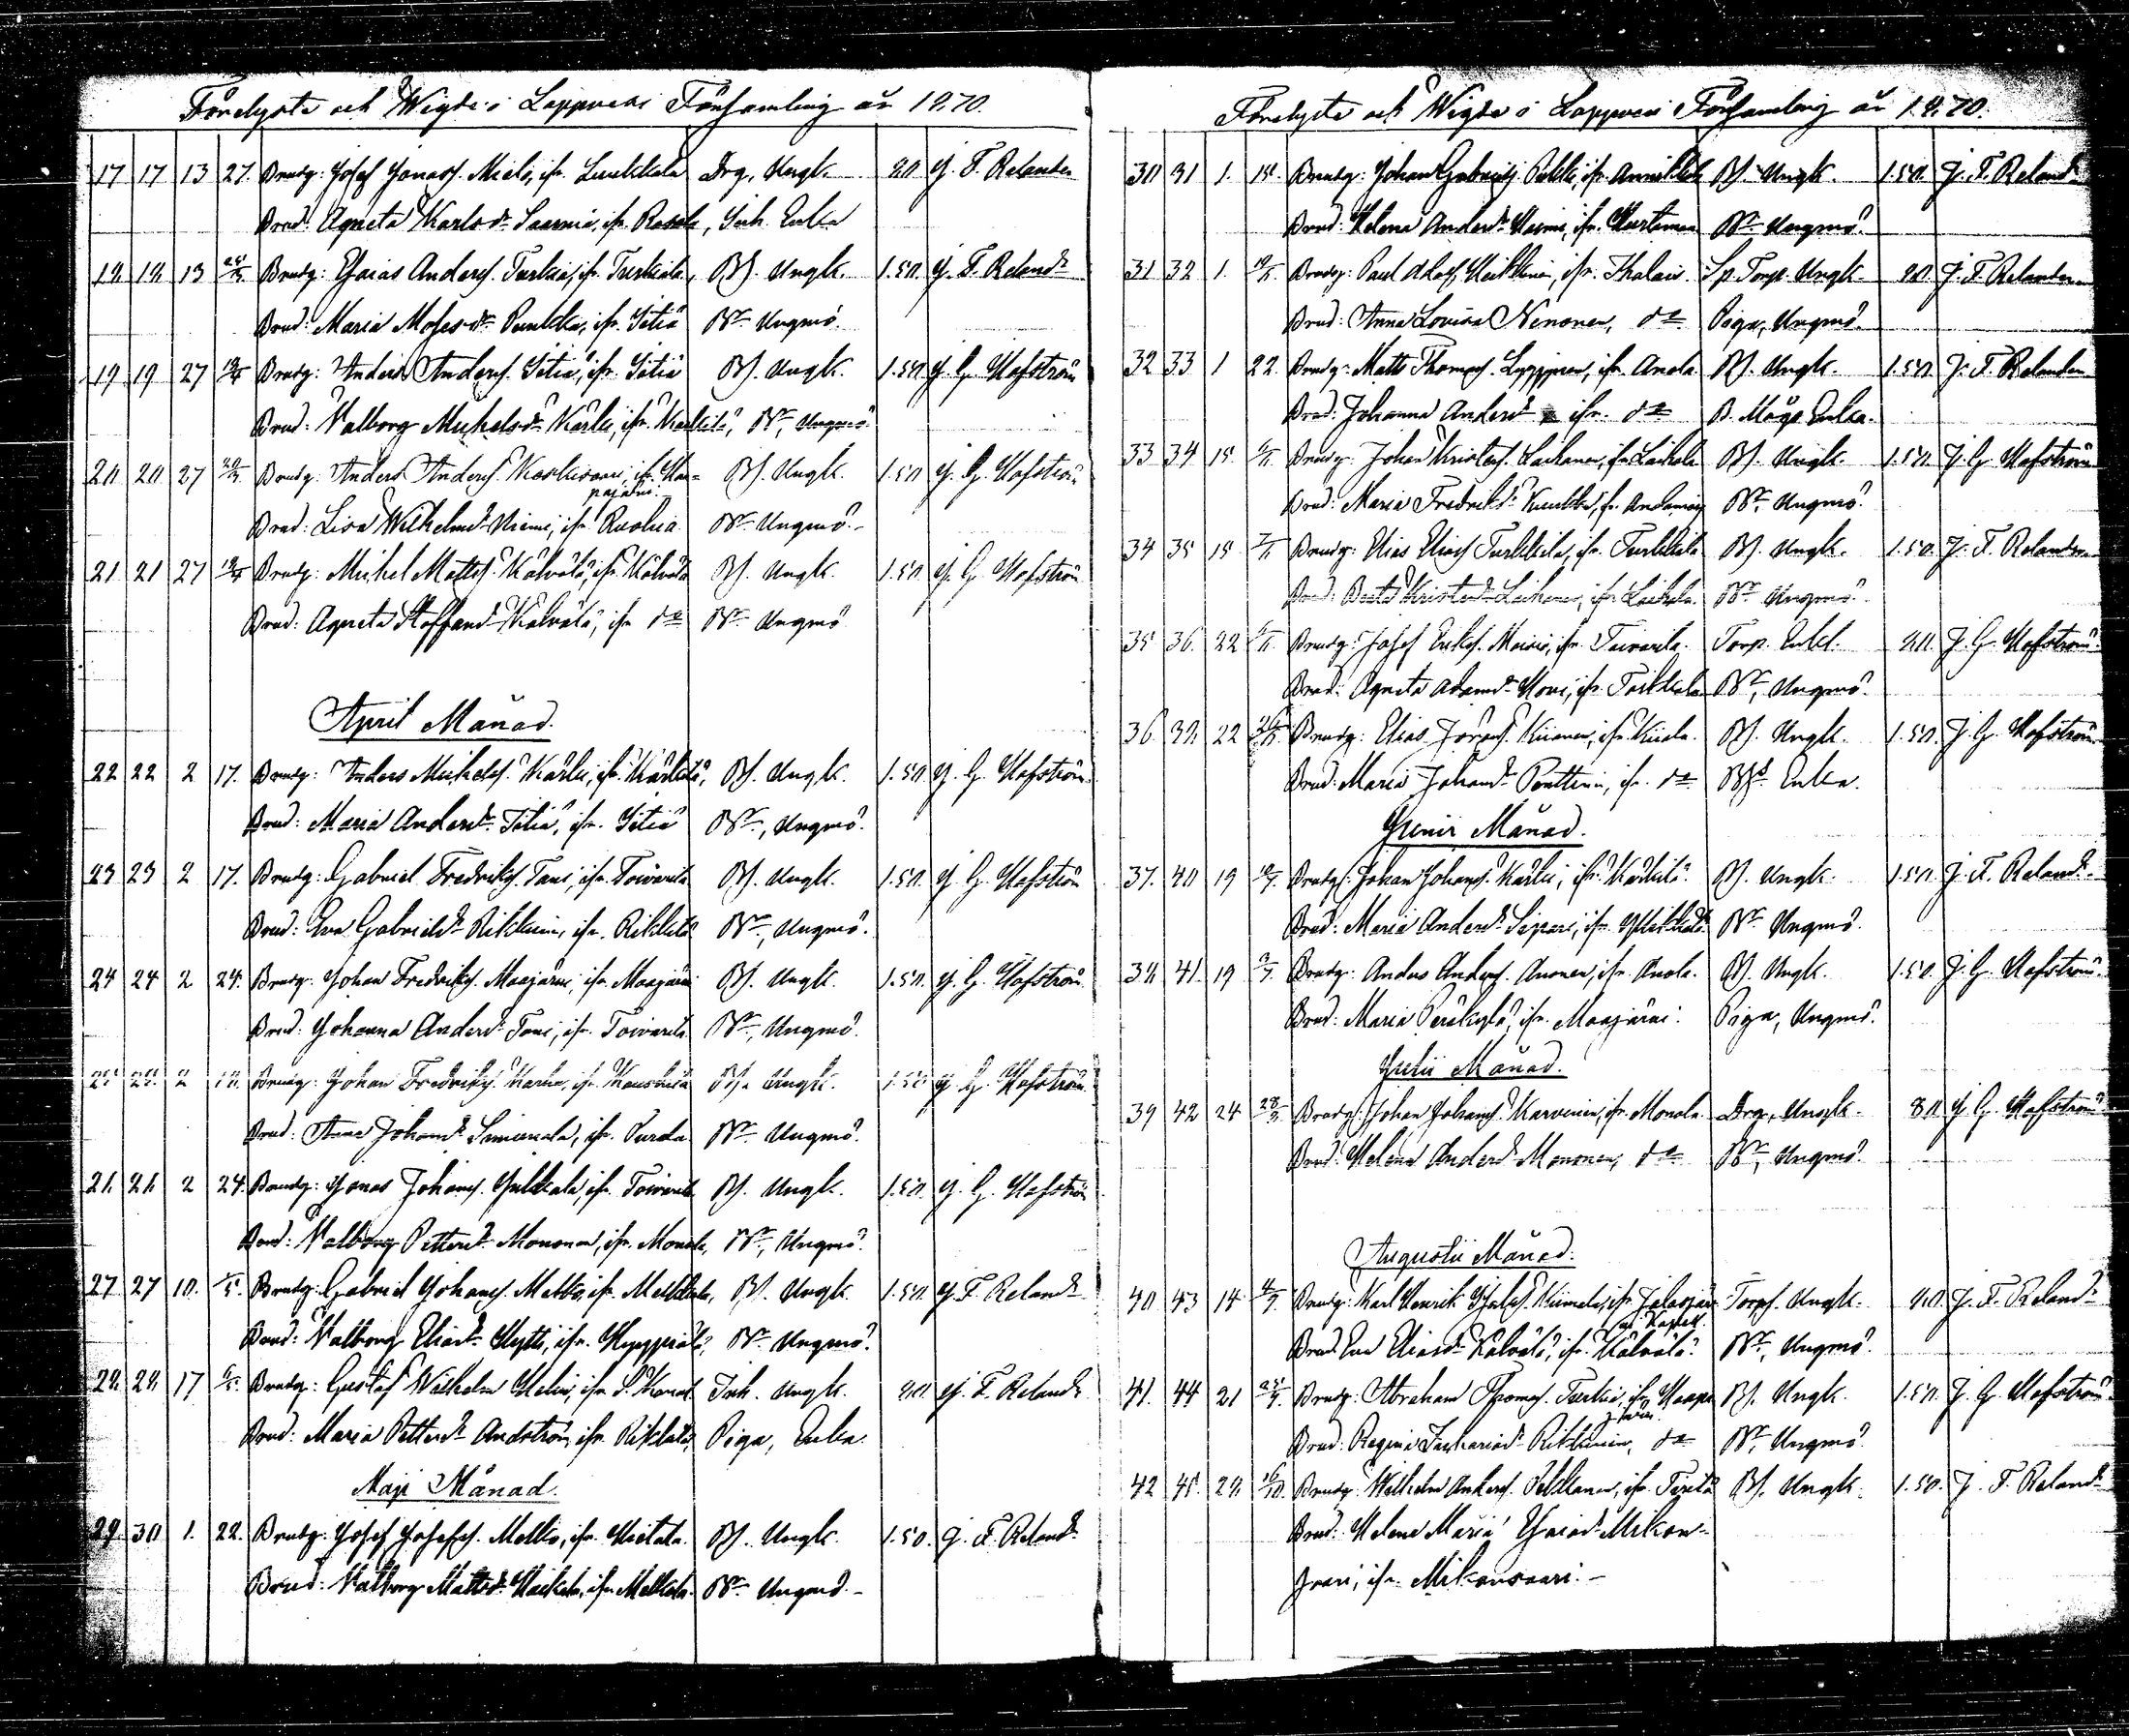 Förelyste och Wigde i Lappvesi Församling år 1870.
17 17 13 27. Brudg: Josef Jonass. Mielo, ifr. Luukkala Drg, Ungk. 80 J. F. Relander
Brud: Agneta Karlsdr Saarnia, ifr. Rasala, Inh. Enka
18 18 13 Brudg: Esaias Anders. Turkia, ifr. Turkiala, Bs. Ungk. 1.50. J. F. Relandr
Brud: Maria Mosesdr Punkka, ifr. Yitiä Dr Ungmö.
19 19 27 Brudg: Anders Anders. Yitiä, ifr. Yitiä Bs. Ungk. 1.50 J. G. Hofström
Brud: Valborg Mickelsdr Kärki, ifr. Kärkilä, Dr, Ungmö.
20 20 27 Brudg: Anders Anders. Koskivani, ifr. Haa-pajärvi Bs. Ungk. 1.50 J. G. Hofström
Brud: Lisa Wilhelmdr Niemi, ifr. Ruohia Dr Ungmö.-
21 21 27 Brudg: Mickel Matts. Kälvälä, ifr. Kälvälä Bs. Ungk. 1.50 J. G. Hofström
Brud: Agneta Staffansdr Kälvälä, ifr. do Dr Ungmö
April Månad.
22 22 2 17. Brudg: Anders Mickels. Kärki, ifr. Kärkilä, Bs. Ungk. 1.50 J. G. Hofström
Brud: Maria Andersdr Yitiä, ifr. Yitiä Dr, Ungmö.
23 23 2 17. Brudg: Gabriel Fredriks. Tani, ifr. Toivarila Bs. Ungk. 1.50. J. G. Hofström
Brud: Eva Gabrielsdr Rikkinen, ifr. Rikkilä Dr, Ungmö.
24 24 2 24. Brudg: Johan Fredriks. Maajärvi, ifr. Maajärvi Bs. Ungk. 1.50. J. G. Hofström
Brud: Johanna Andersdr Tani, ifr. Toivarila Dr, Ungmö.
25 25 2 18. Brudg: Johan Fredriks. Karhu, ifr. Kauskila Bs. Ungk. 1.50 J. G. Hofström
Brud: Anna Johansdr Simunala, ifr. Purala Dr Ungmö.
26 26 2 24. Brudg: Jonas Johans. Jukkala, ifr. Toivarila Bs. Ungk. 1.50. J. G. Hofström
Brud: Valborg Pettersdr Mononen, ifr. Monola, Dr, Ungmö.
27 27 10. Brudg: Gabriel Johans. Melkko, ifr. Melkkola, Bs. Ungk. 1.50 J. F. Relandr
Brud: Valborg Eliasdr Hyytti, ifr. Hyyppiälä, Dr Ungmö.
28 28 17 Brudg: Gustaf Wilhelm Melin, ifr. Inh. Ungk. 80 J. F. Relandr
Brud: Maria Pettersdr Andström, ifr. Rikkilä, Piga, Enka.
Maji Månad.
29. 30 1. 22. Brudg: Josef Josefs. Melkko, ifr. Hietala. Bs. Ungk. 1.50. J. F. Relandr
Brud: Valborg Mattsdr Haikala, ifr. Melkkola. Dr Ungmö.-
Förelyste och Wigde i Lappvesi Församling år 1870.
30 31 1. 15. Brudg: Johan Gabriels. Pukki, ifr. Bs. Ungk. 1.50. J. F. Relandr
Brud: Helena Andersdr ifr. Hurtanmaa Dr Ungmö.
31 32 1. Brudg: Paul Adolf Heikkinen, ifr. Ihalais. Sp. Torp. Ungk. 80. J. F. Relander
Brud: Anna Lovisa Nenonen, do Piga, Ungmö.
32 33 1 22. Brudg: Matts Thomas. ifr. Anola. Bs. Ungk. 1.50. J. F. Relander
Brud: Johanna Andersdr ifr. do B. Mågs Enka.
33 34 15 Brudg: Johan Kristers. Laihanen, ifr. Laihala Bs. Ungk. 1.50. J. G. Hofström
Brud: Maria Fredriksdr fr. Dr, Ungmö.
34 35 15 Brudg: Elias Elias. Turkkila, ifr. Turkkila Bs. Ungk. 1.50. J. F. Relander
Brud: Beata Kristersdr Laihanen, ifr. Laihala Dr Ungmö.
35 36. 22 Brudg: Josef Eriks. ifr. Toivarila. Torp. Enkl. 80. J. G. Hofström
Brud: Agneta Adamsdr Hovi, ifr. Dr, Ungmö.
36. 38. 22 Brudg: Elias Jörans. Kiianen, ifr. Kiiala. Bs. Ungk. 1.50. J. G. Hofström
Brud: Maria Johansdr Penttinen, ifr. do Enka.
Junii Månad.
37. 40 19 Brudg: Johan Johans. Kärki, ifr. Kärkilä. Bs. Ungk. 1.50. J. F. Relandr
Brud: Maria Andersdr Sipari, ifr. Dr Ungmö.
38. 41. 19 Brudg: Anders Anders. Anonen, ifr. Anola. Bs. Ungk. 1.50. J. G. Hofström
Brud: Maria Peräkylä, ifr. Maajärvi. Piga, Ungmö.
Julii Månad.
39 42 24 Brudg: Johan Johans. Karvinen, ifr. Monola. Drg, Ungk. 80. J. G. Hofström
Brud: Helena Andersdr Mononen, do Dr, Ungmö.
Augustii Månad.
40 43 14 Brudg: Karl Henrik ifr. Jalasjärvi Kapell. Torps. Ungk. 80. J. F. Relandr
Brud: Eva Eliasdr Kälvälä, ifr. Kälvälä. Dr, Ungmö.
41. 44 21 Brudg: Abraham Thomas. Turkia, ifr. Haapajärvi. Bs. Ungk. 1.50. J. G. Hofström
Brud: Regina Zachariasdr Rikkinen, do Dr, Ungmö.
42 45. 28. Brudg: Wilhelm Anders. Pekkanen, ifr. Bs. Ungk. 1.50. J. F. Relandr
Brud: Helena Maria Esaiasdr Mikon-
saari, ifr. Mikonsaari.-